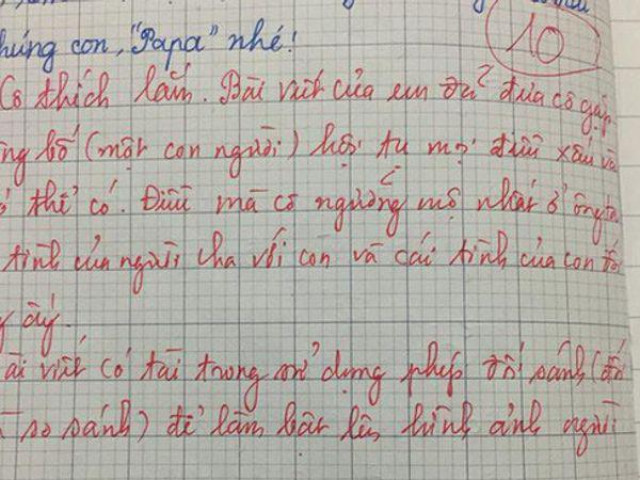 chúng con, "Papa" nhé!
10
Cô thích lắm. Bài viết của em đã đưa cô gặp
ông bố (một con người) hội tụ mọi điều xấu và
thể có. Điều mà cô ngưỡng mộ nhất ở ông ta
tình của người cha với con và cái tình của con
ấy.
ài viết có tài trong sử dụng phép đối sánh (đối
so sánh) để làm bật lên hình ảnh người